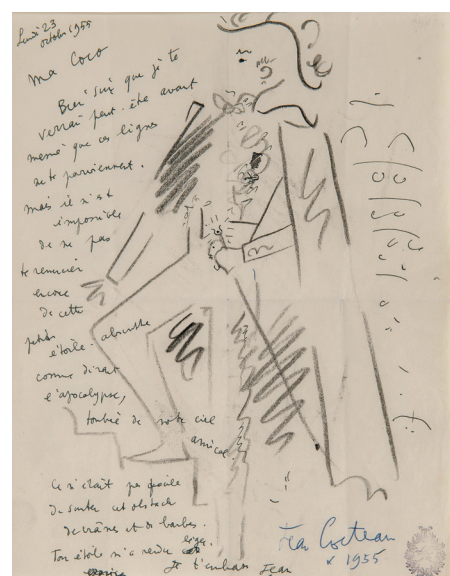 Lundi 23
octobre 1955
Ma Coco
Bien sûr que je te
verrai peut-être avant
même que ces lignes
ne te parviennent.
mais il n'est
impossible
de ne pas
te remercier
encore
de cette
petite
étoile - absinthe
comme dirait
l'apocalypse,
tombée de notre ciel
amical
Ce n'était pas facile
de sauter cet obstacle
de crânes et de barbes.
Ton étoile m'a rendu
léger.
Je t'embrasse Jean
Jean Cocteau
* 1955